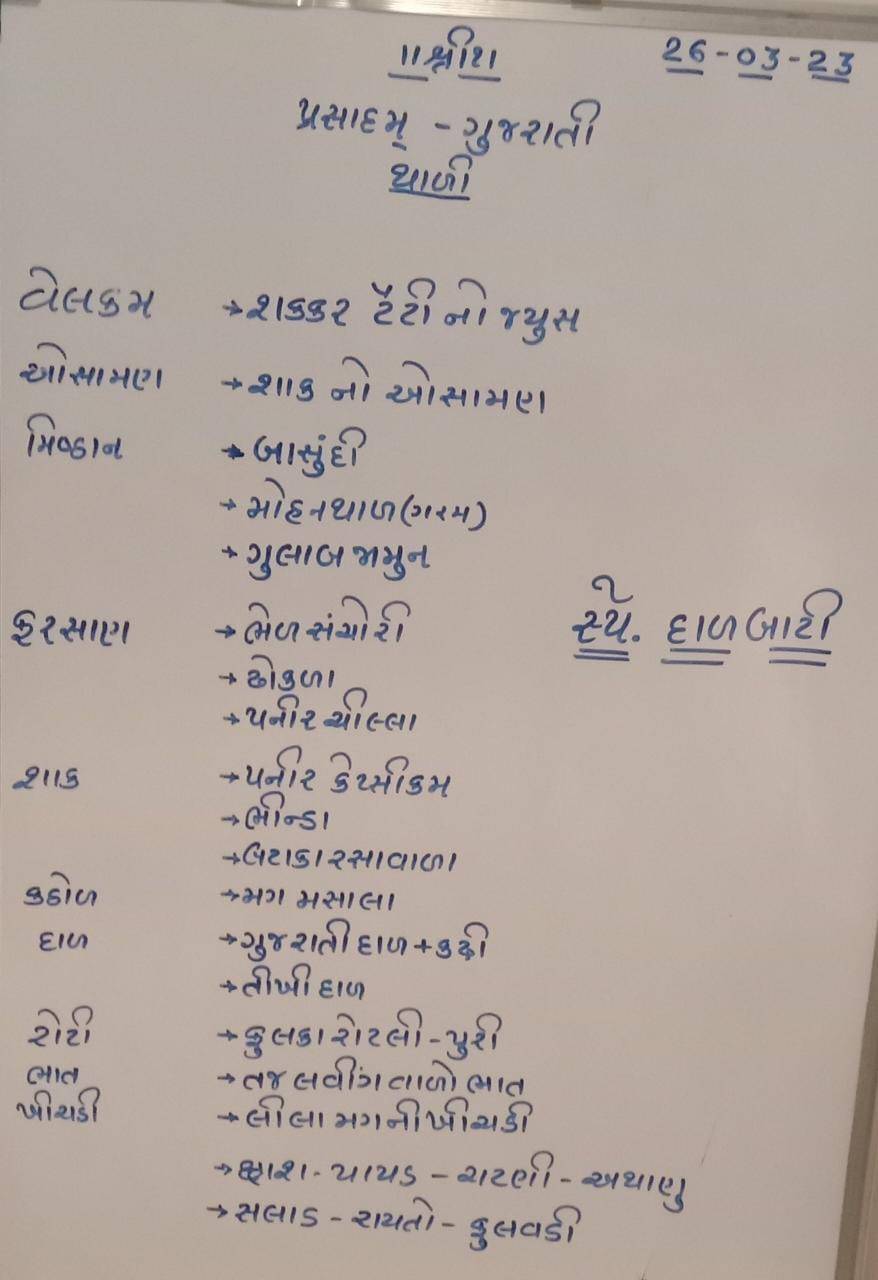 ॥શ્રી॥ 26-03-23
પ્રસાદમ્ - ગુજરાતી
થાળી
વેલકમ → શક્કર ટેટી નો જ્યુસ
ઓસામણ → શાક નો ઓસામણ
મિષ્ઠાન → બાસુંદી
→ મોહનથાળ (ગરમ)
→ ગુલાબ જામુન
ફરસાણ → ભેળ સંચોરી
સ્પે. દાળ બાટી
→ ઢોકળા
→ પનીર ચીલ્લા
શાક → પનીર કેપ્સીકમ
→ ભીન્ડા
→ બટાકા રસાવાળા
કઠોળ → મગ મસાલા
દાળ → ગુજરાતી દાળ + કઢી
→ તીખી દાળ
રોટી → ફુલકા રોટલી - પુરી
ભાત → તજ લવીંગ વાળો ભાત
ખીચડી → લીલા મગ ની ખીચડી
→ છાશ - પાપડ - ચટણી - અથાણુ
→ સલાડ - રાયતો - ફુલવડી